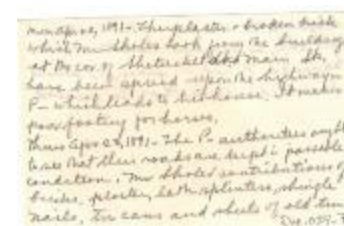 Mon Apr 20, 1891 - The plaster & broken brick
which Mr Sholes took from the building
at the cor of Shetucket and Main Sts,
have been spread upon the highway in
P- which leads to his house. It makes
poor footing for horses.
Thurs Apr 23, 1891 - The P- authorities ought
to see that their roads are kept in passable
condition. Mr Sholes contributions of
bricks, plaster, lath splinters, shingle
nails, tin cans and sheets of old tin